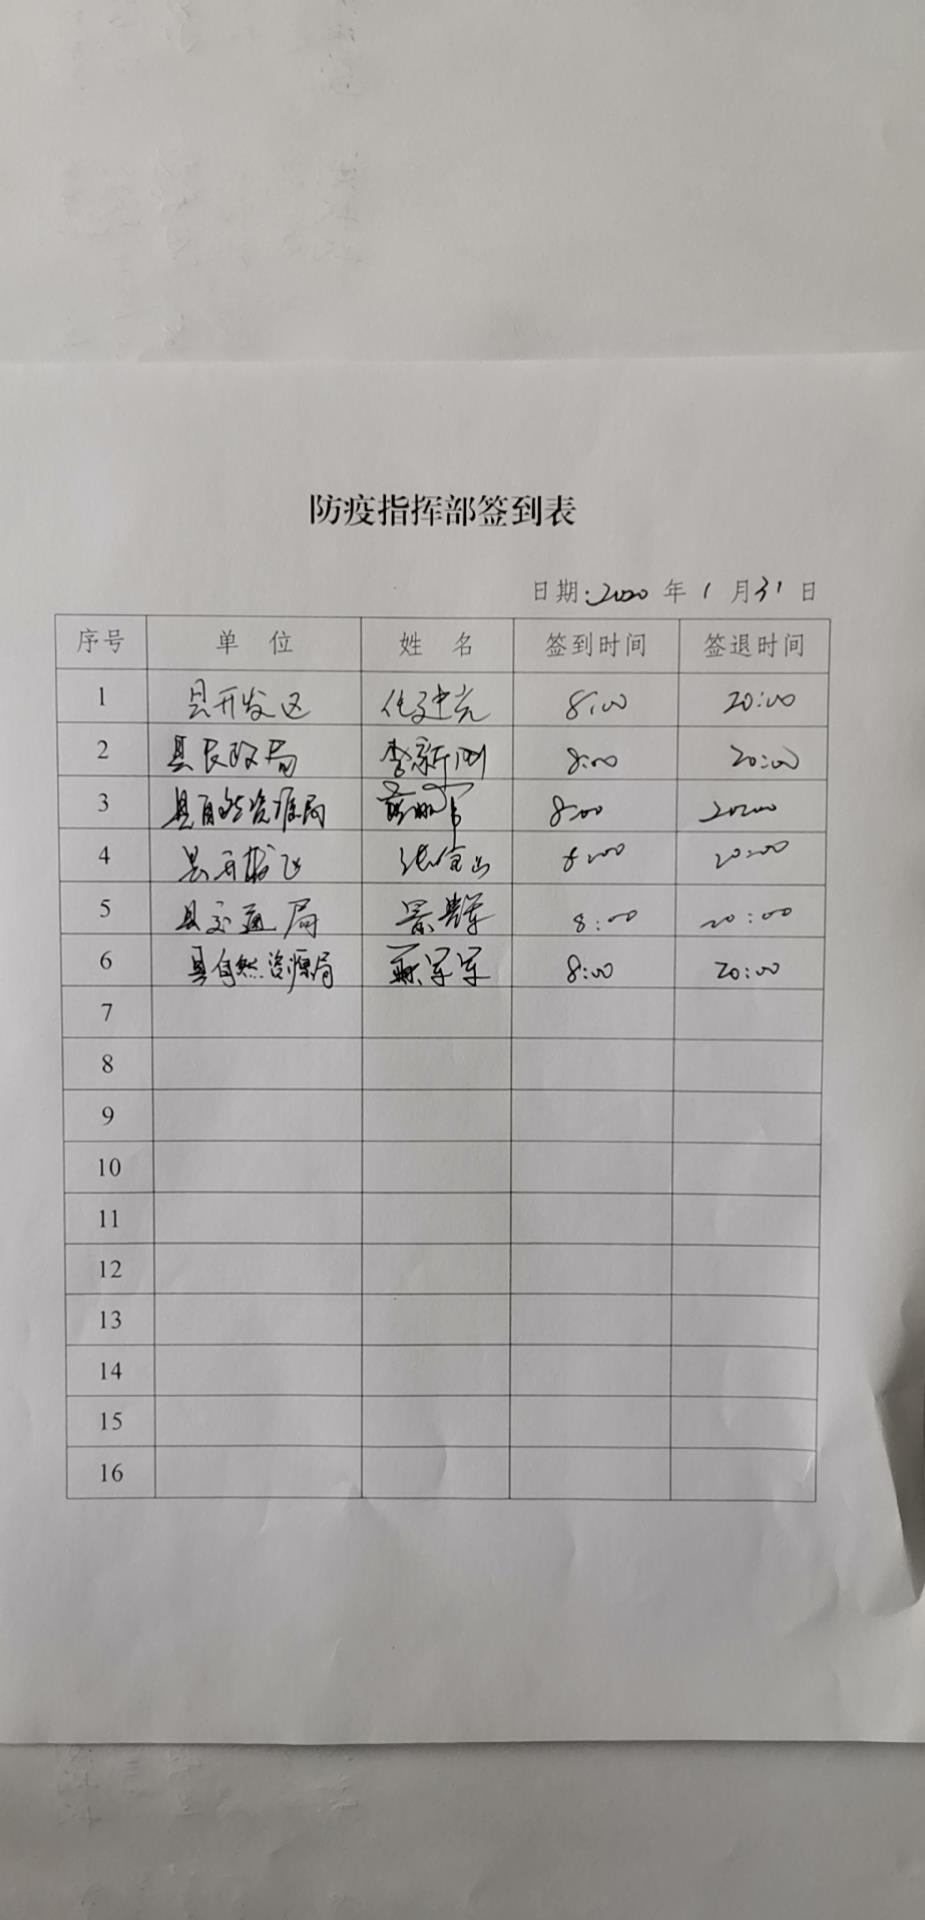 防疫指挥部签到表
日期:2020 年 1 月 31 日
序号 单 位 姓 名 签到时间 签退时间
1 县开发区 任建克 8:00 20:00
2 县民政局 李新刚 8:00 20:00
3 县自然资源局 8:00 20:00
4 县开发区 张宝山 8:00 20:00
5 县交通局 景辉 8:00 20:00
6 县自然资源局 军军 8:00 20:00
7
8
9
10
11
12
13
14
15
16